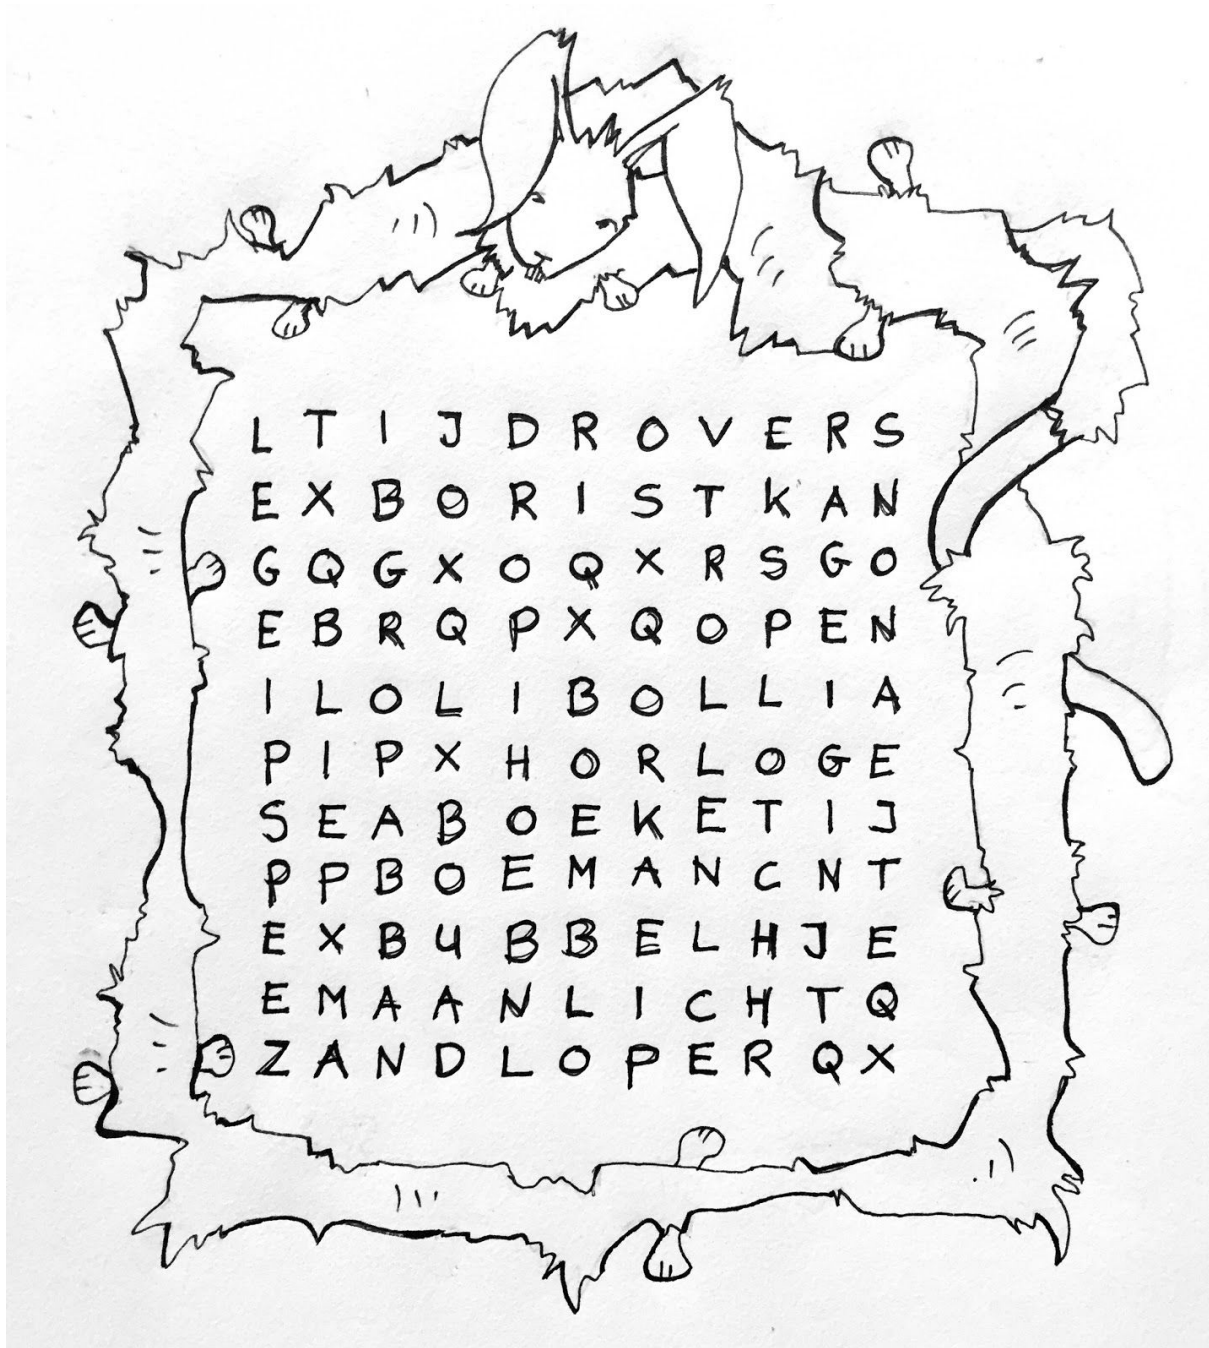 L T I J D R O V E R S
E X B O R I S T K A N
G Q G X O Q X R S G O
E B R Q P X Q O P E N
I L O L I B O L L I A
P I P X H O R L O G E
S E A B O E K E T I J
P P B O E M A N C N T
E X B U B B E L H J E
E M A A N L I C H T Q
Z A N D L O P E R Q X